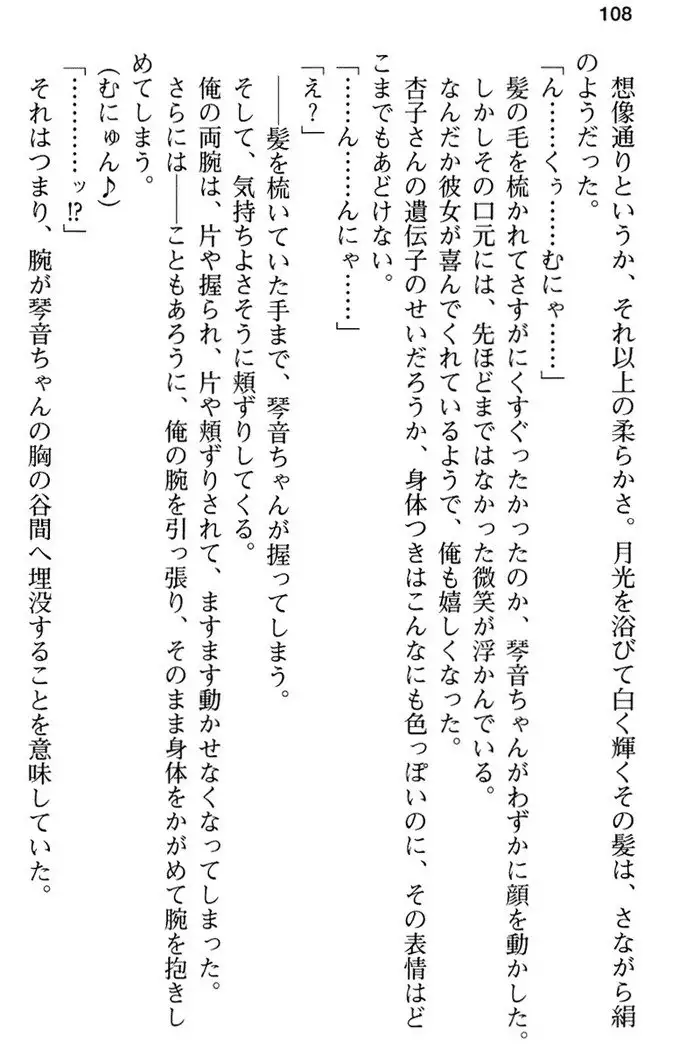 108
想像通りというか、それ以上の柔らかさ。月光を浴びて白く輝くその髪は、さながら絹
のようだった。
「ん……くぅ……むにゃ……」
髪の毛を梳かれてさすがにくすぐったかったのか、琴音ちゃんがわずかに顔を動かした。
しかしその口元には、先ほどまではなかった微笑が浮かんでいる。
なんだか彼女が喜んでくれているようで、俺も嬉しくなった。
杏子さんの遺伝子のせいだろうか、身体つきはこんなにも色っぽいのに、その表情はど
こまでもあどけない。
「……ん……んにゃ……」
「え？」
――髪を梳いていた手まで、琴音ちゃんが握ってしまう。
そして、気持ちよさそうに頬ずりしてくる。
俺の両腕は、片や握られ、片や頬ずりされて、ますます動かせなくなってしまった。
さらには――こともあろうに、俺の腕を引っ張り、そのまま身体をかがめて腕を抱きし
めてしまう。
(むにゅん♪)
「…………ッ!?」
それはつまり、腕が琴音ちゃんの胸の谷間へ埋没することを意味していた。